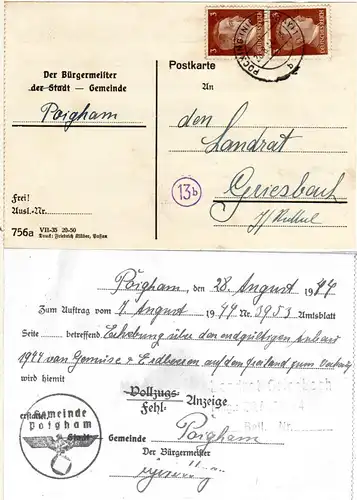 3
3
DEUTSCHES REICH
POCKING
Postkarte
Der Bürgermeister
der Stadt — Gemeinde
Poigham
An
den
Landrat
Griesbach
i/Rottal
13b
Frei!
Ausl.-Nr.
756a VII-35 20-50
Druck: Friedrich Mäber, Passau
Poigham, den 28. August 1944
Zum Auftrag vom 7. August 1944 Nr. 3953 Amtsblatt
Seite betreffend Erhebung über den endgültigen Anbau
1944 von Gemüse & Erdbeeren auf dem Freiland zum Verkauf
wird hiemit
Vollzugs-
Fehl- Anzeige
erstattet.
Gemeinde
Poigham
Stadt - Gemeinde Poigham
Der Bürgermeister